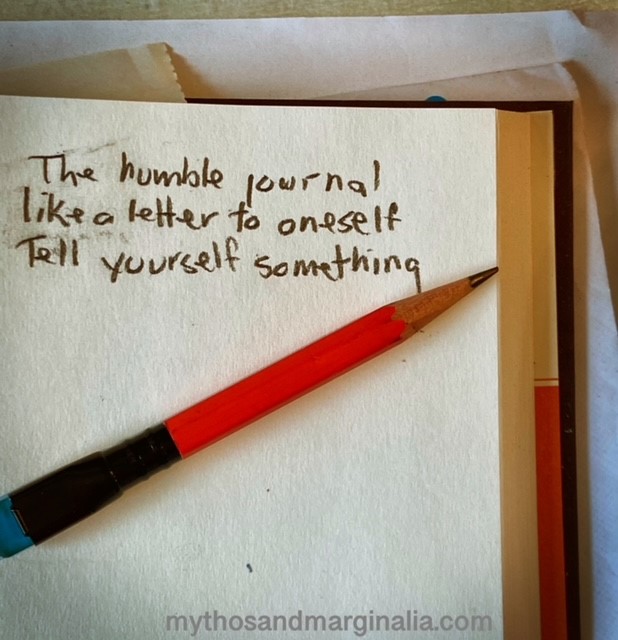 The humble journal
like a letter to oneself
Tell yourself something
mythosandmarginalia.com